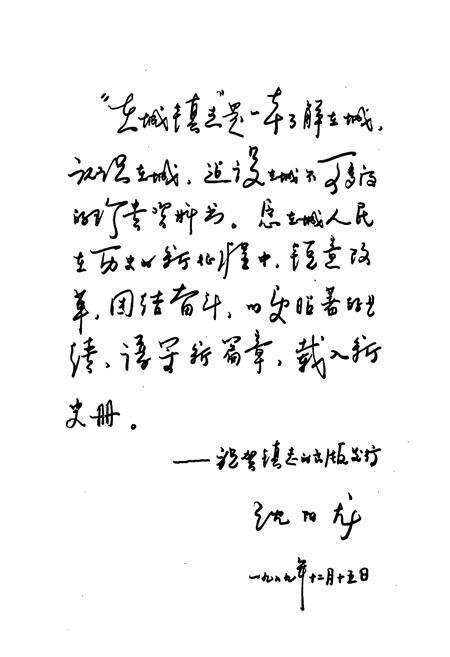 “在城镇志”是一本了解在城，
认识在城，建设在城不可多得
的珍贵资料书。愿在城人民
在历史的新征程中，锐意改
革，团结奋斗，以更昭著的业
绩，谱写新篇章，载入新
史册。
——祝贺镇志的出版发行
沈阳
一九八九年十二月十五日